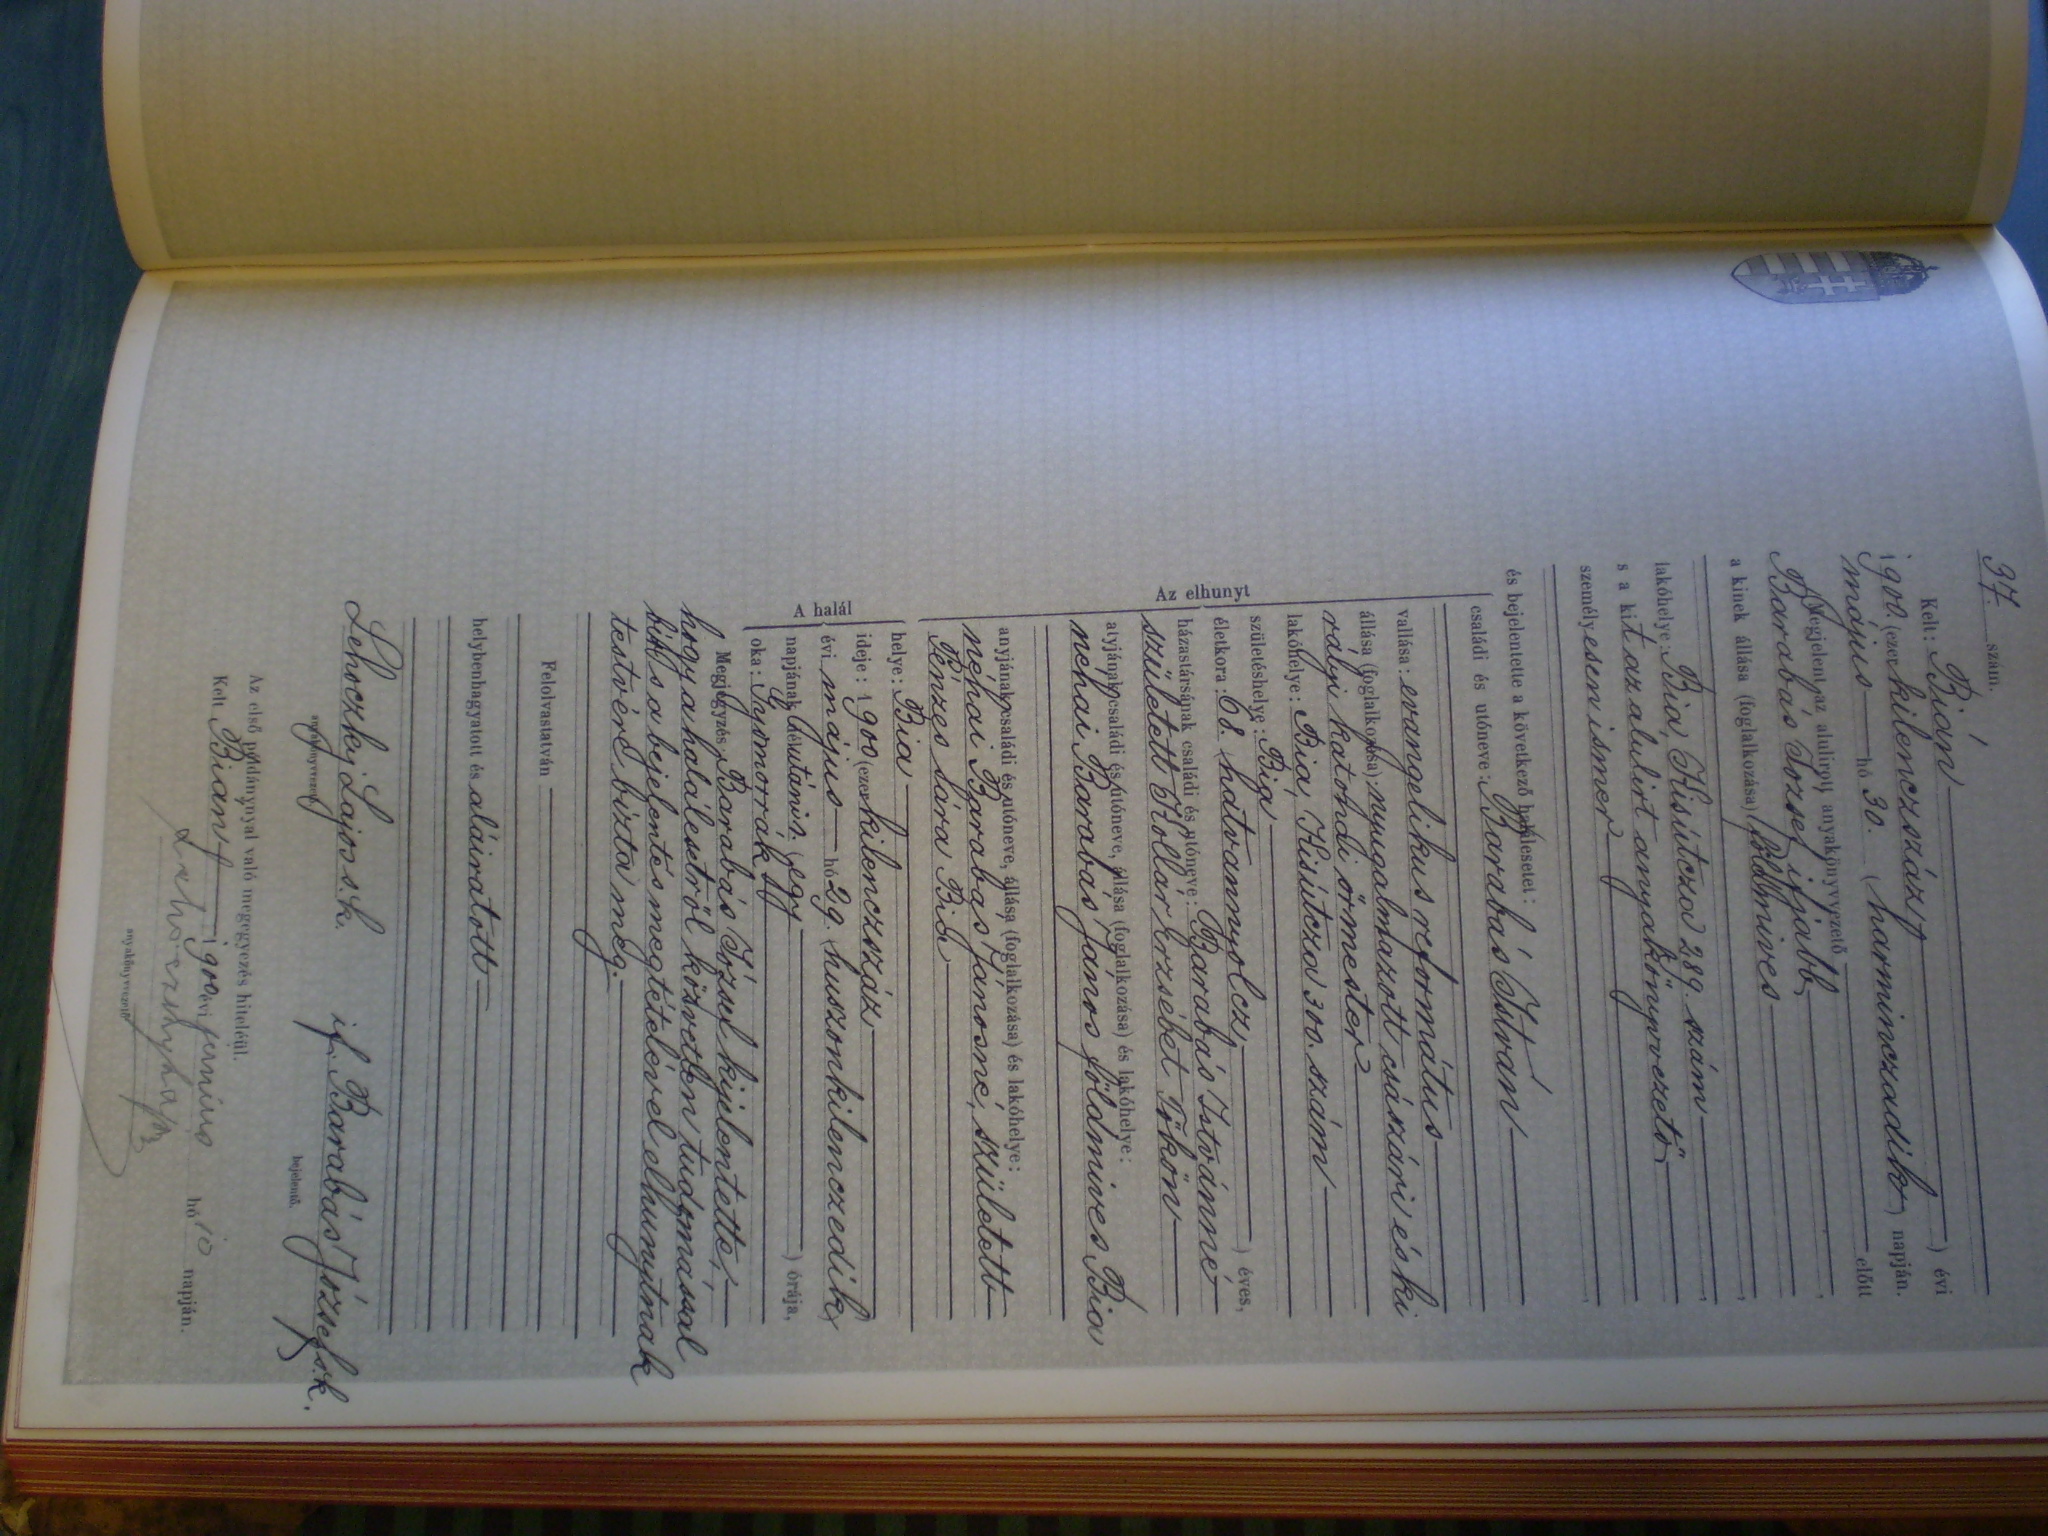 37. szám.
Kelt: Bián
1900 (ezer kilenczszáz) évi
május hó 30. (harminczadik) napján.
Megjelent az alulirott anyakönyvvezető előtt
Barabás József ifjabb,
a kinek állása (foglalkozása) földmives
lakóhelye: Bia, Kisútcza 289. szám,
s a kit az alulirt anyakönyvvezető
személyesen ismer,
és bejelentette a következő halálesetet:
családi és utóneve: Barabás Istvan
vallása: evangelikus református
állása (foglalkozása): nyugalmazott császári és ki
rályi katondi őrmester
lakóhelye: Bia, Kisútcza 300. szám
születéshelye: Bia
életkora: 68. (hatvannyolcz) éves,
házastársának családi és utóneve: Barabás Istvánné
született Kollár Erzsébet Tökön
atyjának családi és utóneve, állása (foglalkozása) és lakóhelye:
néhai Barabás János földmives Bia
anyjának családi és utóneve, állása (foglalkozása) és lakóhelye:
néhai Barabás Jánosné, született
Pénzes Sára Bia
Az elhunyt
helye: Bia
ideje: 1900 (ezer kilenczszáz
évi május hó 29. (huszonkilenczedik)
napjának délutánin. 1 (egy) órája,
oka: Gyomorrák
A halál
Megjegyzés: Barabás József kijelentette,
hogy a halálesetről közvetlen tudomással
bír s a bejelentés megtételével elhunytnak
testvére bizta meg.
Felolvastatván
helybenhagyatott és aláiratott
Lehoczky Lajos s.k. if. Barabás József s.k.
anyakönyvvezető bejelentő.
Az első példánynyal való megegyezés hiteléül.
Kelt Bian 1900 évi junius hó 10 napján.
anyakönyvvezető